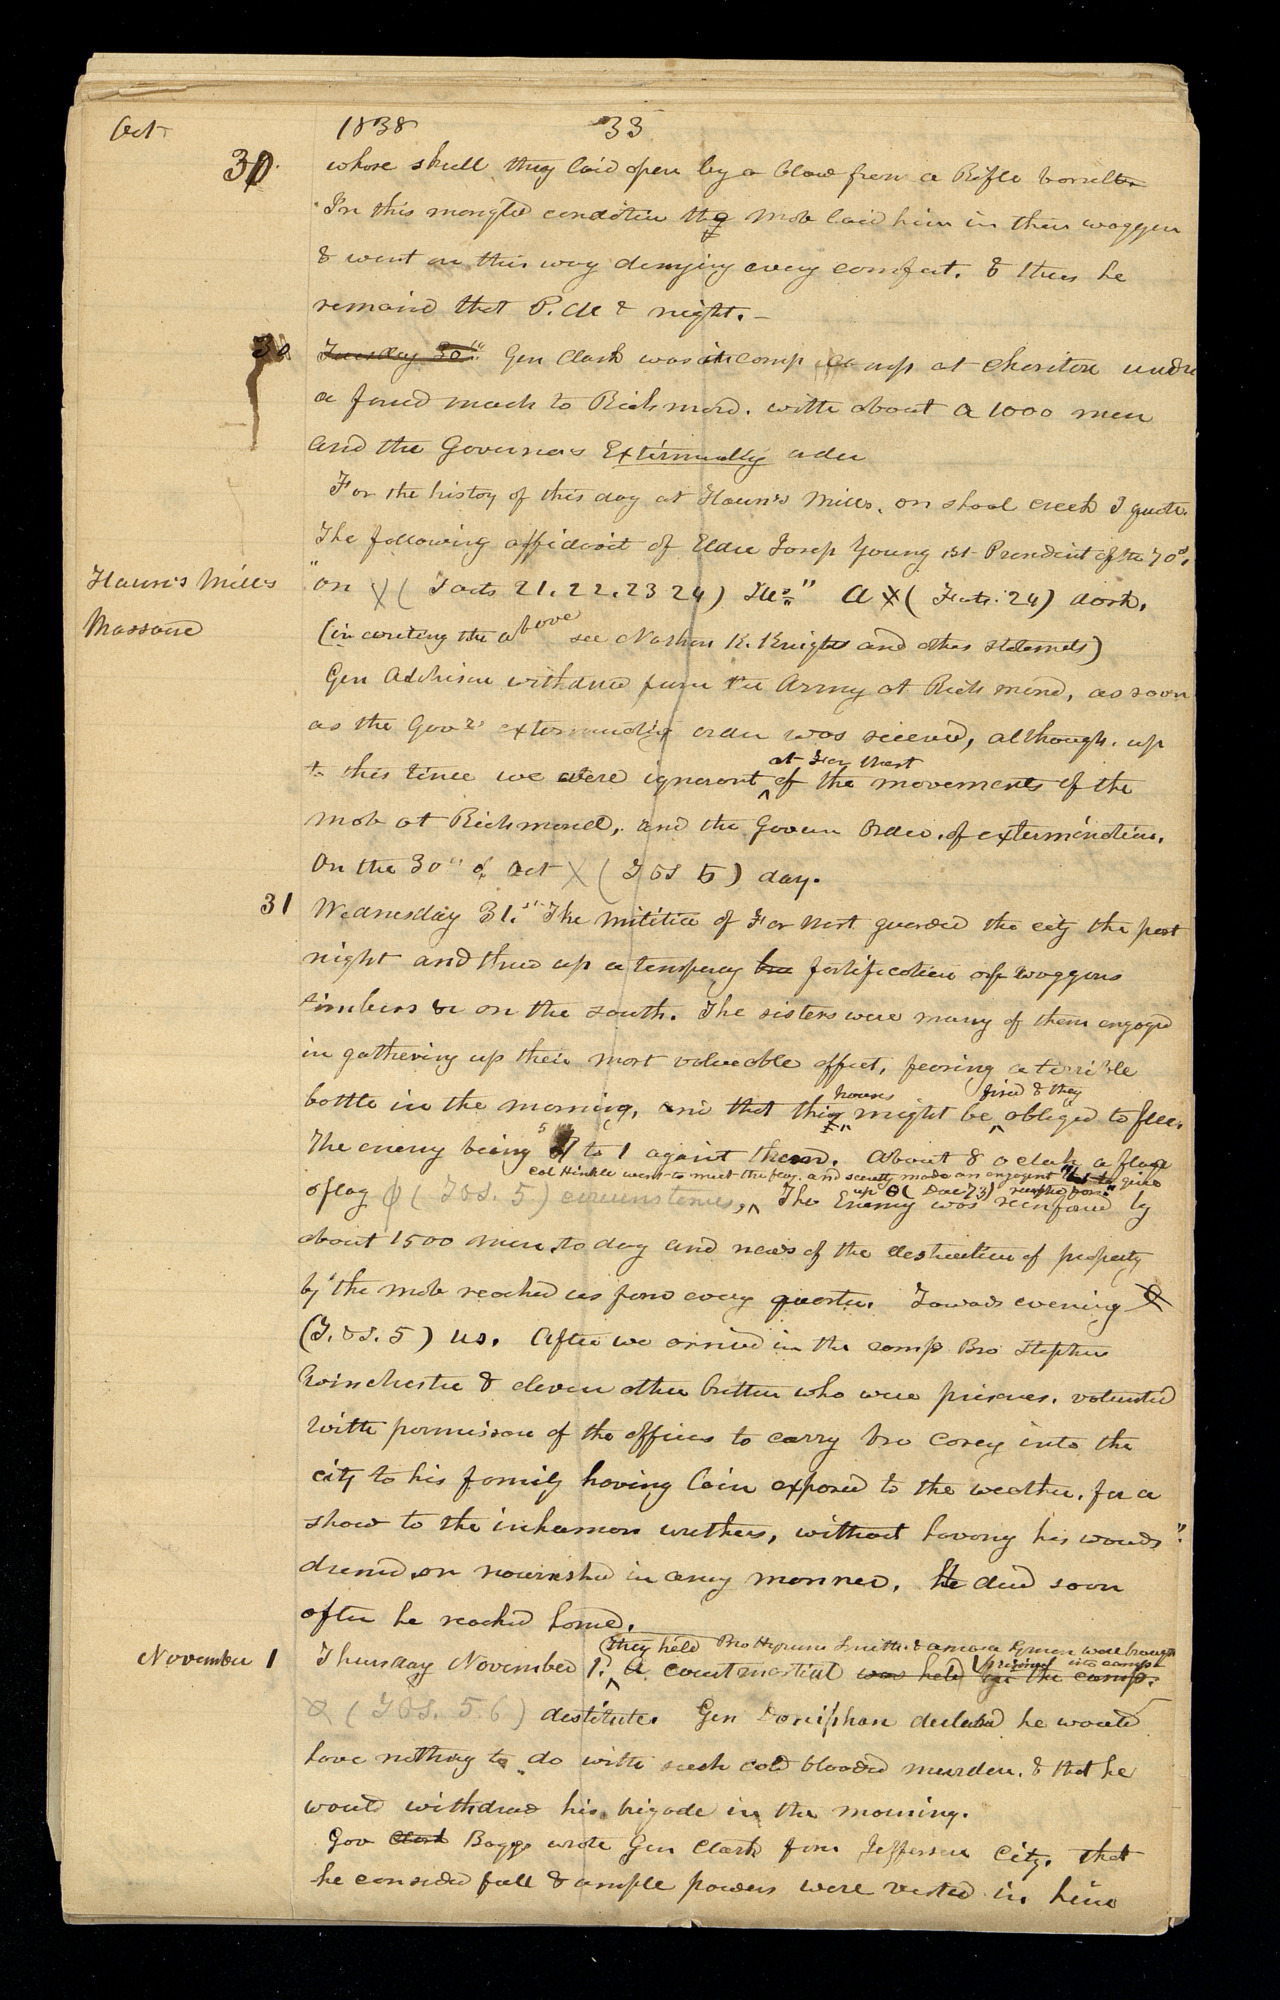 Oct
1838 33
30. whose skull they laid open by a blow from a Rifle barrell.
In this mangled condition the mob laid him in their waggon
& went on their way denying every comfort. & thus he
remaind that P.M & night. —
30 Tuesday 30th. Gen Clark was in camp at Chariton under
a forced march to Richmond. with about a 1000 men
and the Governors Exterminating order
For the history of this day at Haun's Mills, on shoal creek I quote.
The following affidavit of Elder Joseph Young 1st President of the 70s.
Haun's Mills "on X ( Facts 21. 22. 23 24) &c." A X ( Facts. 24) dark.
Massacre (in writing the above see Nathan K. Knights and other statements)
Gen Atchison withdrew from the Army at Richmond, as soon
as the Govrs exterminating order was received, although. up
at Far West
to this time we were ignorant of the movements of the
mob at Richmond, and the Govern order. of extermination.
On the 30" of Oct X ( T & S 5) day.
31 Wednesday 31st. The militia of Far West guarded the city the past
night and threw up a temporary fortification of waggons
timbers &c on the south. The sisters were many of them engaged
in gathering up their most valuable effect, fearing a terrible
houses fired & they
battle in the morning, and that their might be obliged to flee.
The enemy being 5 to 1 against them. About 8 o clock a flag
Col Hinkle went to meet the flag. and secretly made an engagement "1st to give
up ( Doc 73)
o flag ( T & S. 5) circumstances, The Enemy was reinforced by
about 1500 men to day and news of the destruction of property
by the mob reached us from every quarter. Towards evening
(T. & S. 5) us. After we arrived in the camp Bro Stephen
Winchester & eleven other brethren who were prisoners. volunteered
with permission of the officers to carry bro Carey into the
city to his family having lain exposed to the weather. for a
show to the inhuman wretches, without having his wounds
dressed, or nourished in any manner. He died soon
after he reached home.
they held Bro Hyrum Smith & Amasa Lyman were brought
prisoners into camp
November 1 Thursday November 1st. A court martial was held in the camp.
( T & S. 5. 6) destitute. Gen Doniphan declared he would
have nothing to do with such cold blooded murder. & that he
would withdraw his brigade in the morning.
Gov Clark Boggs wrote Gen Clark from Jefferson City. that
he considered full & ample powers were vested in him